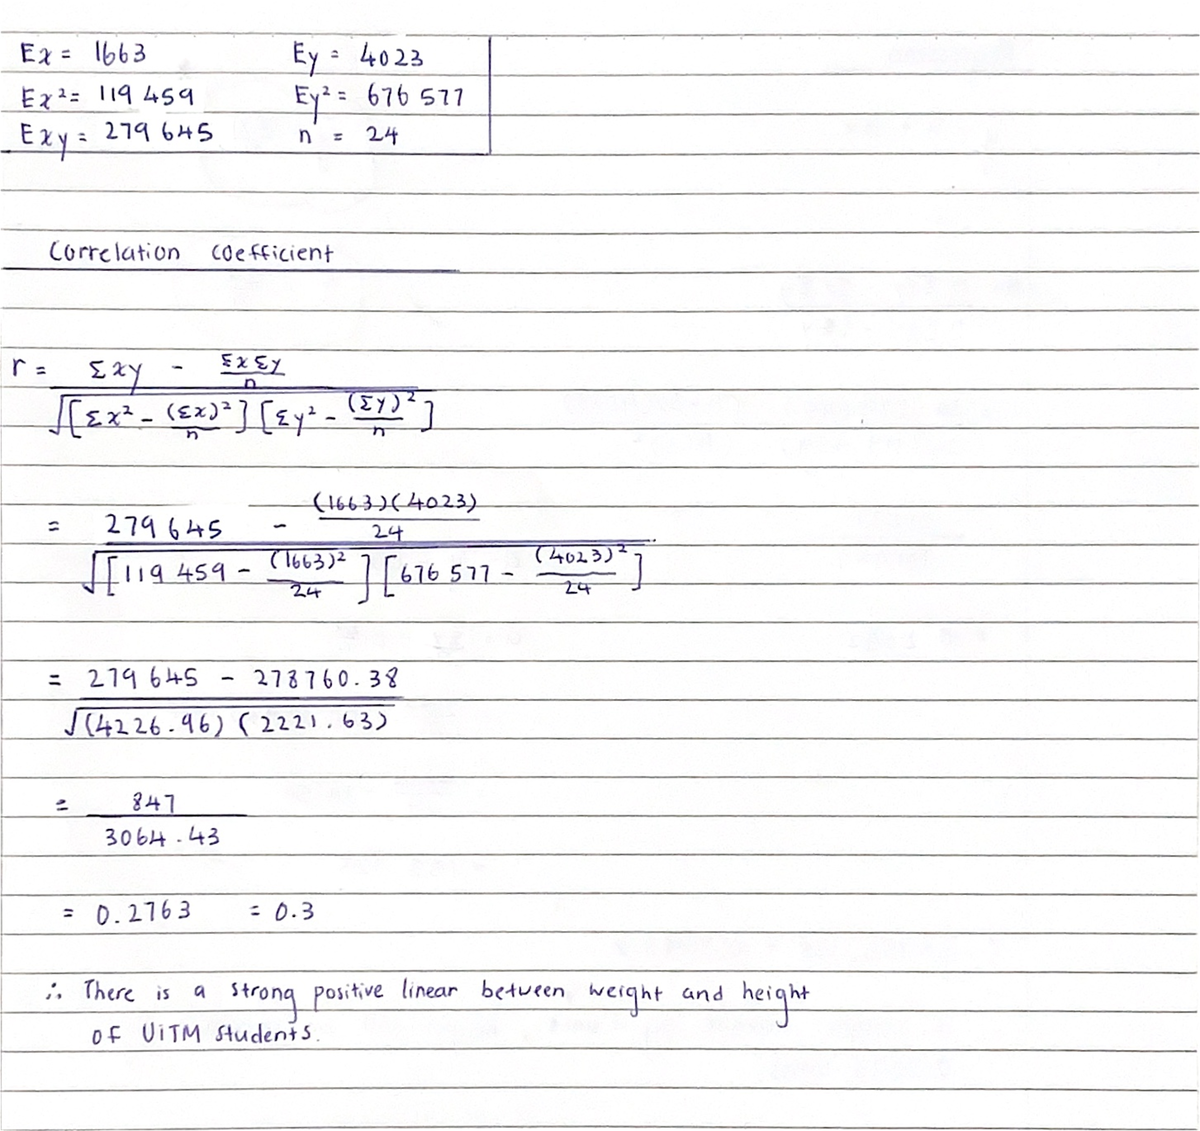 Ex = 1663 Ey = 4023
Ex² = 119 459 Ey² = 676 577
Exy = 279 645 n = 24
Correlation coefficient
r = Σxy - ΣxΣy/n
√[Σx² - (Σx)²/n] [Σy² - (Σy)²/n]
= 279 645 - (1663)(4023)/24
√[119 459 - (1663)²/24] [676 577 - (4023)²/24]
= 279 645 - 278760.38
√(4226.96) (2221.63)
= 847
3064.43
= 0.2763 = 0.3
∴ There is a strong positive linear between weight and height
of UiTM students.